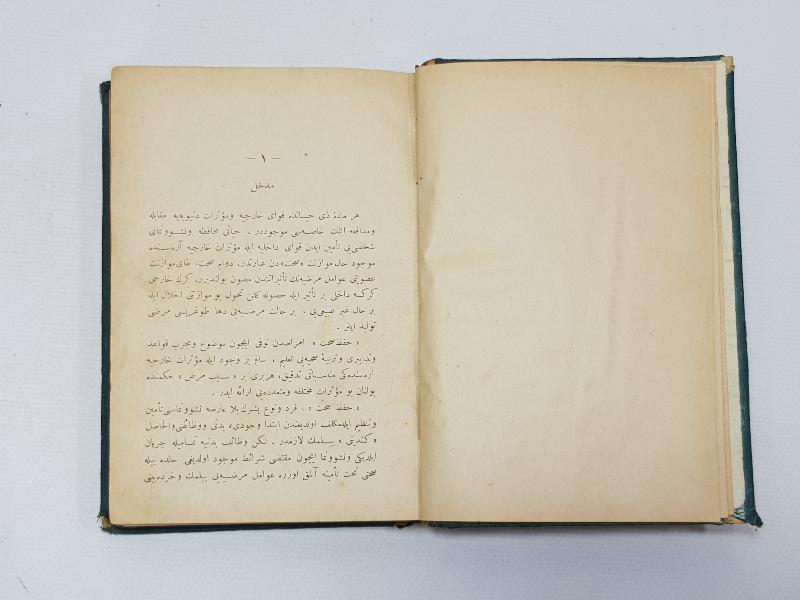 — ١ —
مدخل
هر مادهٔ ذی حیاتده قوای خارجیه ومؤثرات دنیویه‌یه مقابله
ومدافعه ایتمك خاصه‌سی موجوددر . حیاتی محافظه ونشوونمای
شخصی‌یی تأمین ایدن قوای داخلیه ایله مؤثرات خارجیه آره‌سنده
موجود حال موازنت «صحت»دن عبارتدر، دوام صحت، بقای موازنت
عضویتی عوامل مرضیه‌نك تأثیراتندن مصون بولندیرر، كرك خارجی
كركسه داخلی بر تأثیر ایله حصوله كلن تحول بو موازنتی اخلال ایله
بر حال غیر طبیعی‌یی ، بر حالت مرضیه‌یی دها طوغریسی مرضی
تولید ایدر .
« حفظ صحت » امراضدن توقی ایچون موضوع ومجرب قواعد
وتدابیری وتربیهٔ صحیه‌یی تعلیم ، سالم بر وجود ایله مؤثرات خارجیه
آره‌سنده‌كی مناسباتی تدقیق، هربری بر « سبب مرض » حكمنده
بولنان بو مؤثرات مختلفه ومتعدده‌یی ارائه ایدر .
« حفظ صحت » ، فرد ونوع بشرك بلا عارضه نشوونماسنی تأمین
وتنظیم ایله مكلف اولدیغندن ابتدا وجودی، بدنی ووظائفنی والحاصل
« كندینی » بیلمك لازمدر . لكن وظائف بدنیه تمامیله جریان
ایلدیكی ونشوونما ایچون مقتضی شرائط موجود اولدیغی حالده بیله
صحتی تحت تأمینه آلمق اوزره عوامل مرضیه‌یی بیلمك وخرده‌بینی